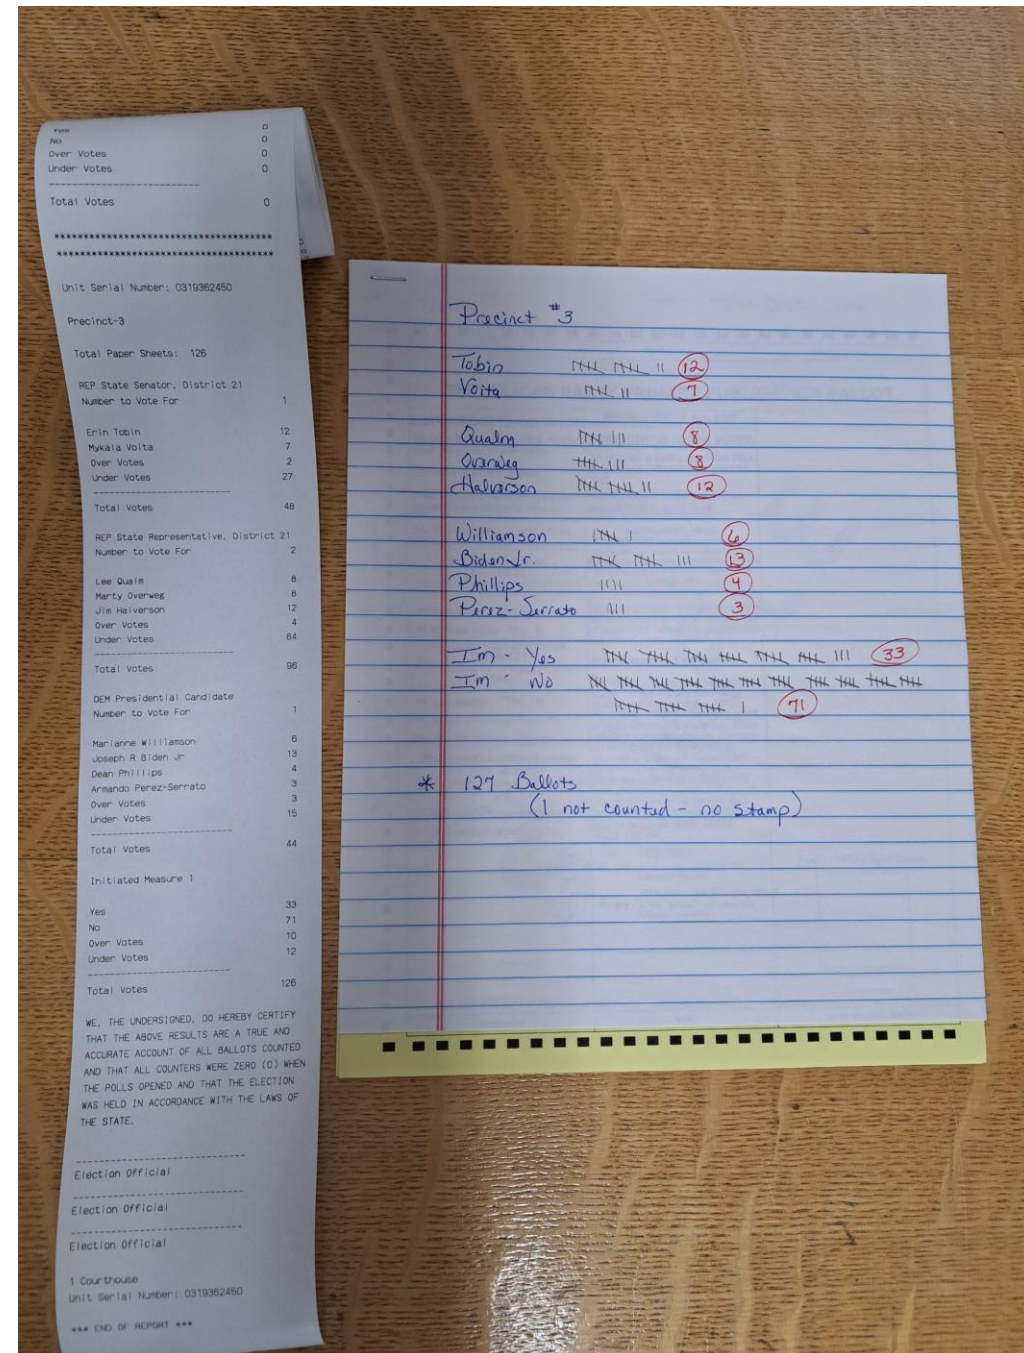 Yes 0
No 0
Over Votes 0
Under Votes 0
------------------------------
Total Votes 0
****************************************
****************************************
Unit Serial Number: 0319362450
Precinct-3
Total Paper Sheets: 126
REP State Senator, District 21
Number to Vote For 1
Erin Tobin 12
Mykala Voita 7
Over Votes 2
Under Votes 27
------------------------------
Total Votes 48
REP State Representative, District 21
Number to Vote For 2
Lee Qualm 8
Marty Overweg 8
Jim Halverson 12
Over Votes 4
Under Votes 64
------------------------------
Total Votes 96
DEM Presidential Candidate
Number to Vote For 1
Marianne Williamson 6
Joseph R Biden Jr 13
Dean Phillips 4
Armando Perez-Serrato 3
Over Votes 3
Under Votes 15
------------------------------
Total Votes 44
Initiated Measure 1
Yes 33
No 71
Over Votes 10
Under Votes 12
------------------------------
Total Votes 126
WE, THE UNDERSIGNED, DO HEREBY CERTIFY
THAT THE ABOVE RESULTS ARE A TRUE AND
ACCURATE ACCOUNT OF ALL BALLOTS COUNTED
AND THAT ALL COUNTERS WERE ZERO (0) WHEN
THE POLLS OPENED AND THAT THE ELECTION
WAS HELD IN ACCORDANCE WITH THE LAWS OF
THE STATE.
------------------------------
Election Official
------------------------------
Election Official
------------------------------
Election Official
1 Courthouse
Unit Serial Number: 0319362450
*** END OF REPORT ***
Precinct #3
Tobin 12
Voita 7
Qualm 8
Overweg 8
Halverson 12
Williamson 6
Biden Jr. 13
Phillips 4
Perez-Serrato 3
Im - Yes 33
Im - No
71
* 127 Ballots
(1 not counted - no stamp)